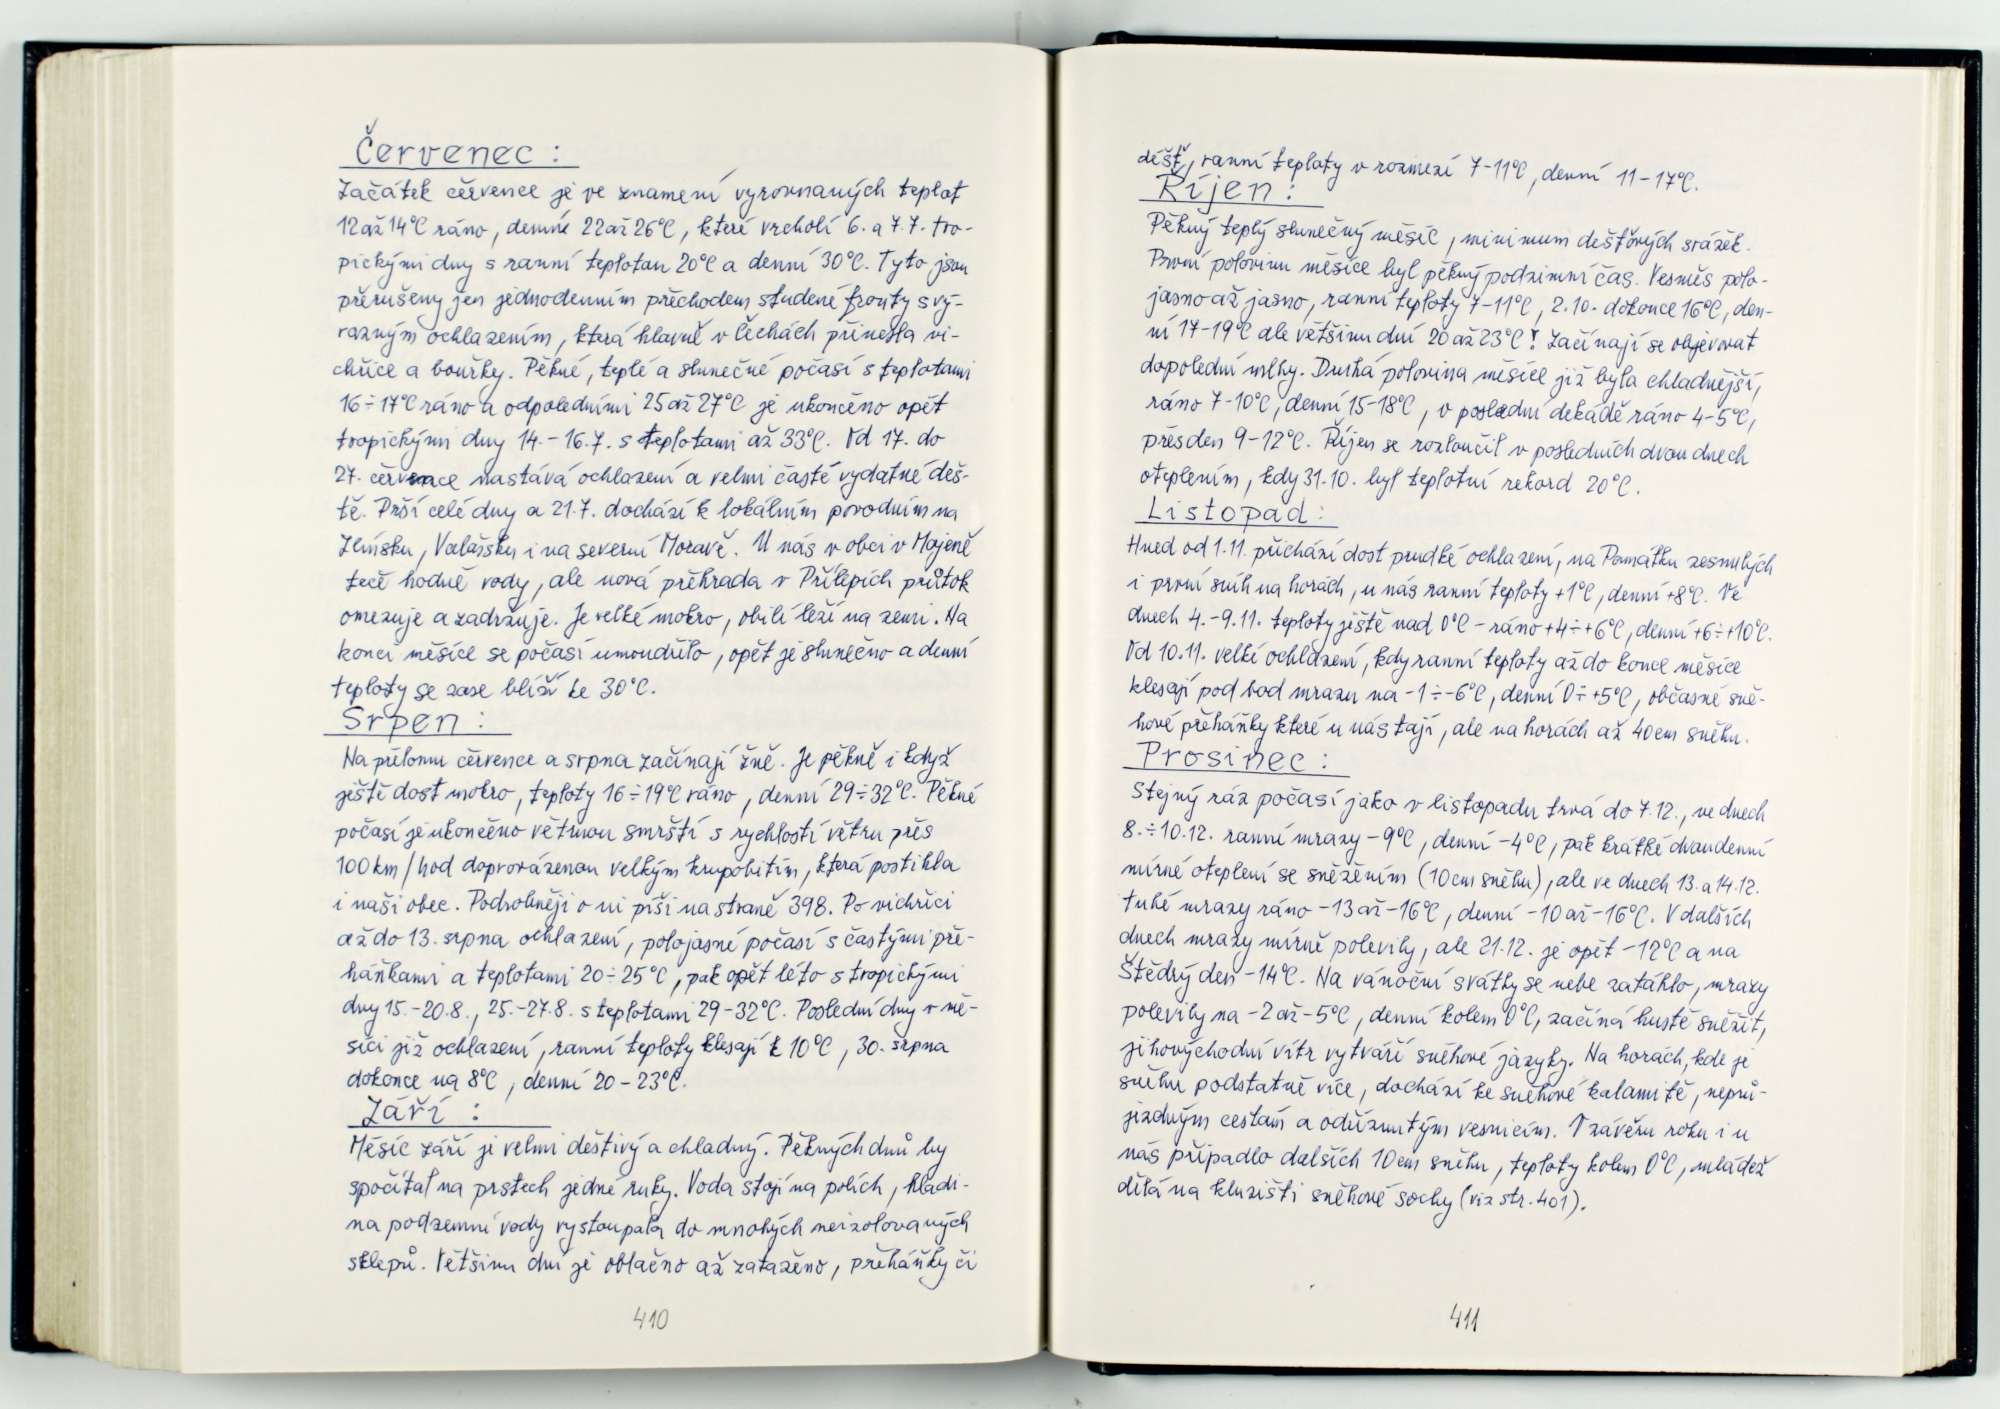 Červenec:
Začátek července je ve znamení vyrovnaných teplot
12 až 14°C ráno, denní 22 až 26°C, které vrcholí 6. a 7.7. tro-
pickými dny s ranní teplotou 20°C a denní 30°C. Tyto jsou
přerušeny jen jednodenním přechodem studené fronty s vý-
razným ochlazením, která hlavně v Čechách přinesla vi-
chřice a bouřky. Pěkné, teplé a slunečné počasí s teplotami
16÷17°C ráno a odpoledními 25 až 27°C je ukončeno opět
tropickými dny 14.-16.7. s teplotami až 33°C. Od 17. do
27. července nastává ochlazení a velmi časté vydatné deš-
tě. Prší celé dny a 21.7. dochází k lokálním povodním na
Zlínsku, Valašsku i na severní Moravě. U nás v obci v Mojeně
teče hodně vody, ale nová přehrada v Přílepích průtok
omezuje a zadržuje. Je velké mokro, obilí leží na zemi. Na
konci měsíce se počasí umoudřilo, opět je slunečno a denní
teploty se zase blíží ke 30°C.
Srpen:
Na přelomu července a srpna začínají žně. Je pěkně i když
ještě dost mokro, teploty 16÷19°C ráno, denní 29÷32°C. Pěkné
počasí je ukončeno větrnou smrští s rychlostí větru přes
100 km/hod doprovázenou velkým krupobitím, která postihla
i naši obec. Podrobněji o ní píši na straně 398. Po vichřici
až do 13. srpna ochlazení, polojasné počasí s častými pře-
háňkami a teplotami 20÷25°C, pak opět léto s tropickými
dny 15.-20.8., 25.-27.8. s teplotami 29-32°C. Poslední dny v mě-
síci již ochlazení, ranní teploty klesají k 10°C, 30. srpna
dokonce na 8°C, denní 20-23°C.
Září:
Měsíc září je velmi deštivý a chladný. Pěkných dnů by
spočítal na prstech jedné ruky. Voda stojí na polích, hladi-
na podzemní vody vystoupala do mnohých neizolovaných
sklepů. Většinu dní je oblačno až zataženo, přeháňky či
410
déšť, ranní teploty v rozmezí 7-11°C, denní 11-17°C.
Říjen:
Pěkný teplý slunečný měsíc, minimum dešťových srážek.
První polovinu měsíce byl pěkný podzimní čas. Vesměs polo-
jasno až jasno, ranní teploty 7-11°C, 2.10. dokonce 16°C, den-
ní 17-19°C ale většinu dní 20 až 23°C! Začínají se objevovat
dopolední mlhy. Druhá polovina měsíce již byla chladnější,
ráno 7-10°C, denní 15-18°C, v poslední dekádě ráno 4-5°C,
přes den 9-12°C. Říjen se rozloučil v posledních dvou dnech
oteplením, kdy 31.10. byl teplotní rekord 20°C.
Listopad:
Hned od 1.11. přichází dost prudké ochlazení, na Památku zesnulých
i první sníh na horách, u nás ranní teploty +1°C, denní +8°C. Ve
dnech 4.-9.11. teploty ještě nad 0°C - ráno +4÷+6°C, denní +6÷+10°C.
Od 10.11. velké ochlazení, kdy ranní teploty až do konce měsíce
klesají pod bod mrazu na -1÷-6°C, denní 0÷+5°C, občasné sně-
hové přeháňky které u nás tají, ale na horách až 40 cm sněhu.
Prosinec:
Stejný ráz počasí jako v listopadu trvá do 7.12., ve dnech
8.÷10.12. ranní mrazy -9°C, denní -4°C, pak krátké dvoudenní
mírné oteplení se sněžením (10 cm sněhu), ale ve dnech 13. a 14.12.
tuhé mrazy ráno -13 až -16°C, denní -10 až -16°C. V dalších
dnech mrazy mírně polevily, ale 21.12. je opět -12°C a na
Štědrý den -14°C. Na vánoční svátky se nebe zatáhlo, mrazy
polevily na -2 až -5°C, denní kolem 0°C, začíná hustě sněžit,
jihovýchodní vítr vytváří sněhové jazyky. Na horách, kde je
sněhu podstatně více, dochází ke sněhové kalamitě, neprů-
jizdným cestám a odříznutým vesnicím. V závěru roku i u
nás připadlo dalších 10 cm sněhu, teploty kolem 0°C, mládež
dělá na kluzišti sněhové sochy (viz str. 401).
411